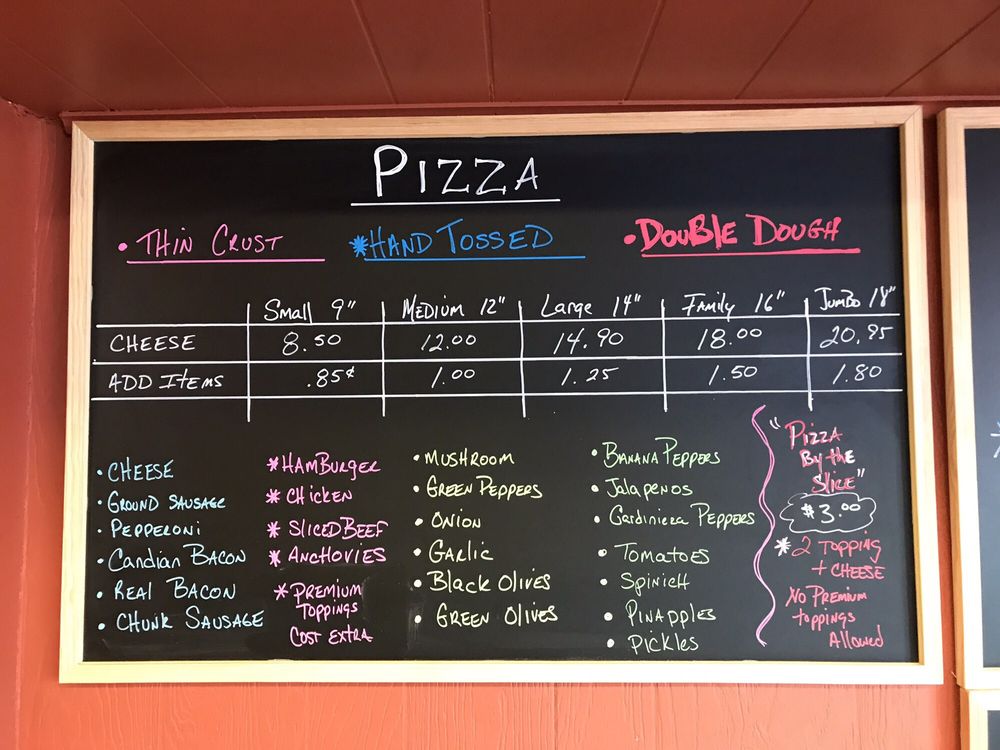 PIZZA
• THIN CRUST *HAND TOSSED • DOUBLE DOUGH
Small 9" MEDIUM 12" Large 14" FAMILY 16" JUMBO 18"
CHEESE 8.50 12.00 14.90 18.00 20.95
ADD ITEMS .85¢ 1.00 1.25 1.50 1.80
• CHEESE
• GROUND SAUSAGE
• PEPPERONI
• Candian BACON
• REAL BACON
• CHUNK SAUSAGE
* HAMBURGER
* CHICKEN
* SLICED BEEF
* ANCHOVIES
* PREMIUM
TOPPINGS
COST EXTRA
• MUSHROOM
• GREEN PEPPERS
• ONION
• GARLIC
• Black Olives
• GREEN Olives
• BANANA PEPPERS
• Jalapenos
• Gardiniera PEPPERS
• TOMATOES
• SPINICH
• PINAPPLES
• PICKLES
"PIZZA
By the
SLICE"
$3.00
* 2 TOPPING
+ CHEESE
NO PREMIUM
toppings
Allowed